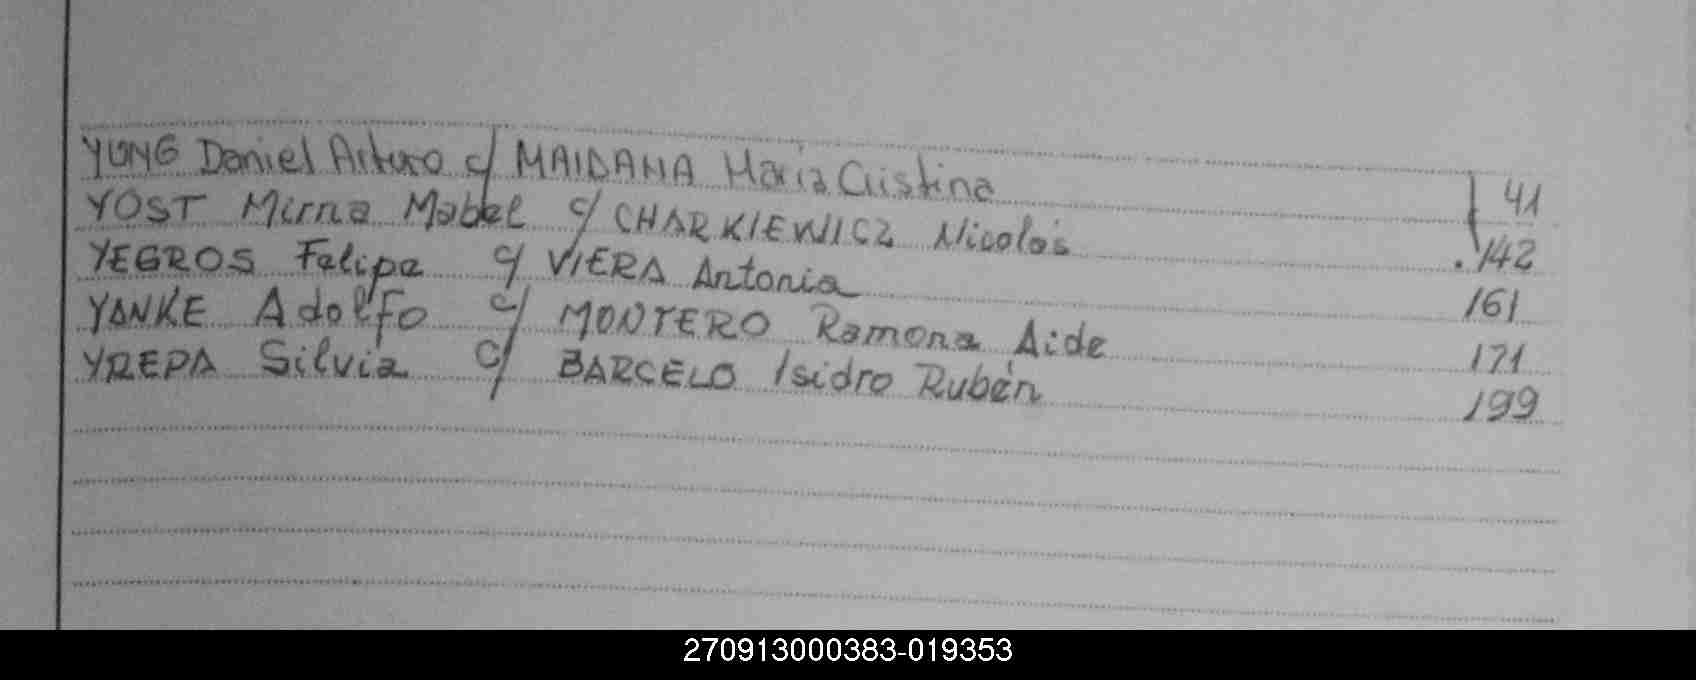 YUNG Daniel Arturo c/ MAIDANA Maria Cristina 41
YOST Mirna Mabel c/ CHARKIEWICZ Nicolás .142
YEGROS Felipa c/ VIERA Antonia 161
YANKE Adolfo c/ MONTERO Ramona Aide 171
YREPA Silvia c/ BARCELO Isidro Rubén 199
270913000383-019353